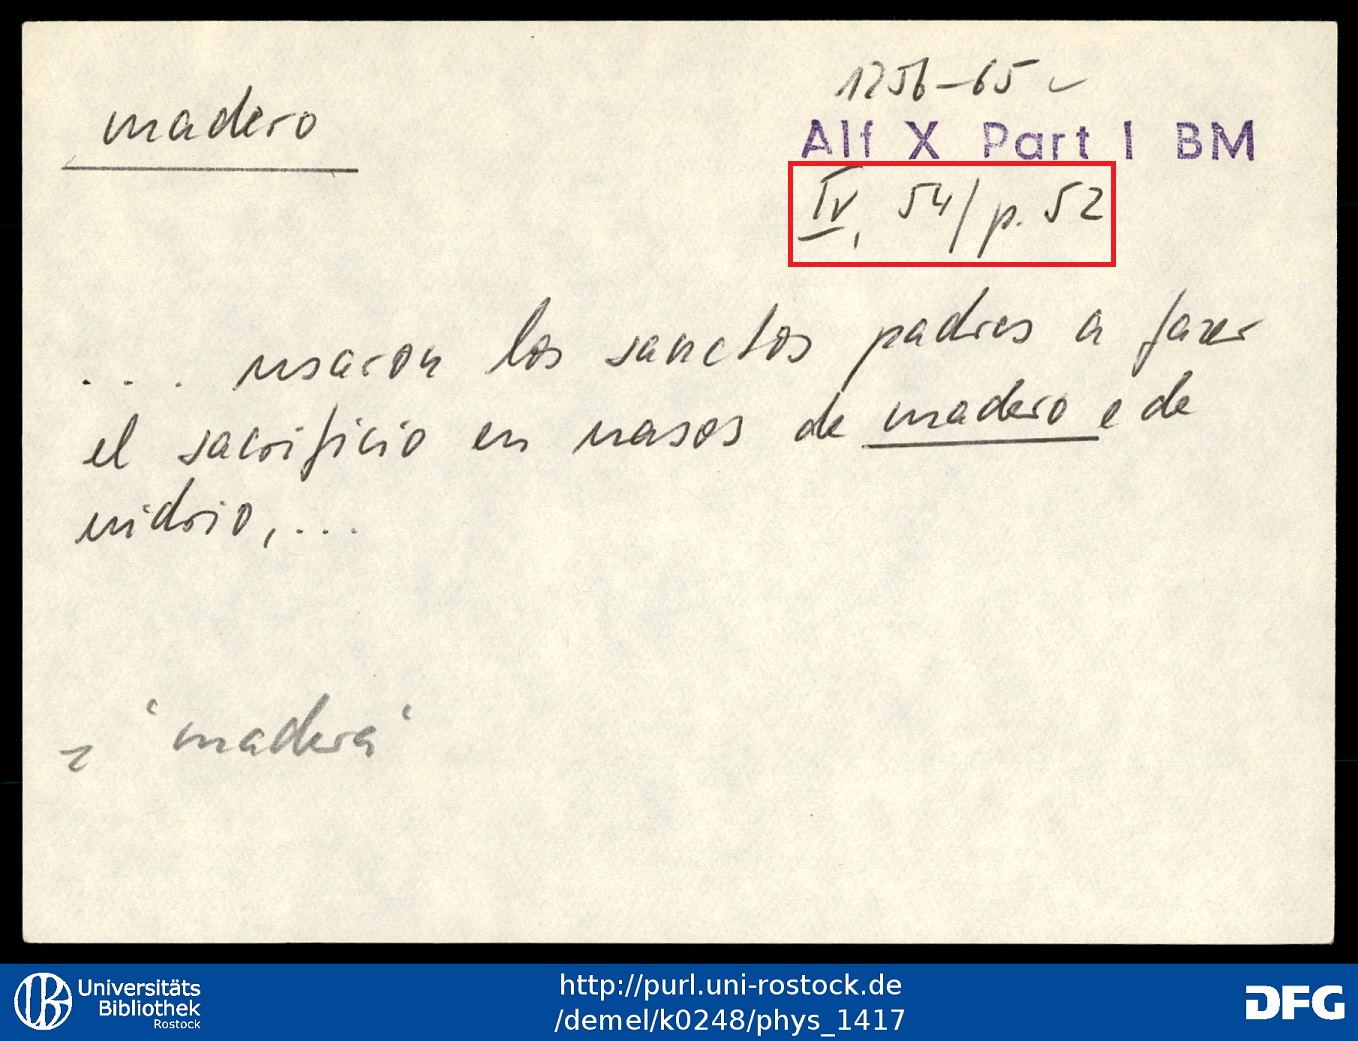 madero
1256-65
Alf X Part I BM
IV, 54/p. 52
.... usaron los sanctos padres a fazer
el sacrificio en uasos de madero e de
uidrio,...
= 'madera'
Universitäts
Bibliothek
Rostock
http://purl.uni-rostock.de
/demel/k0248/phys_1417
DFG